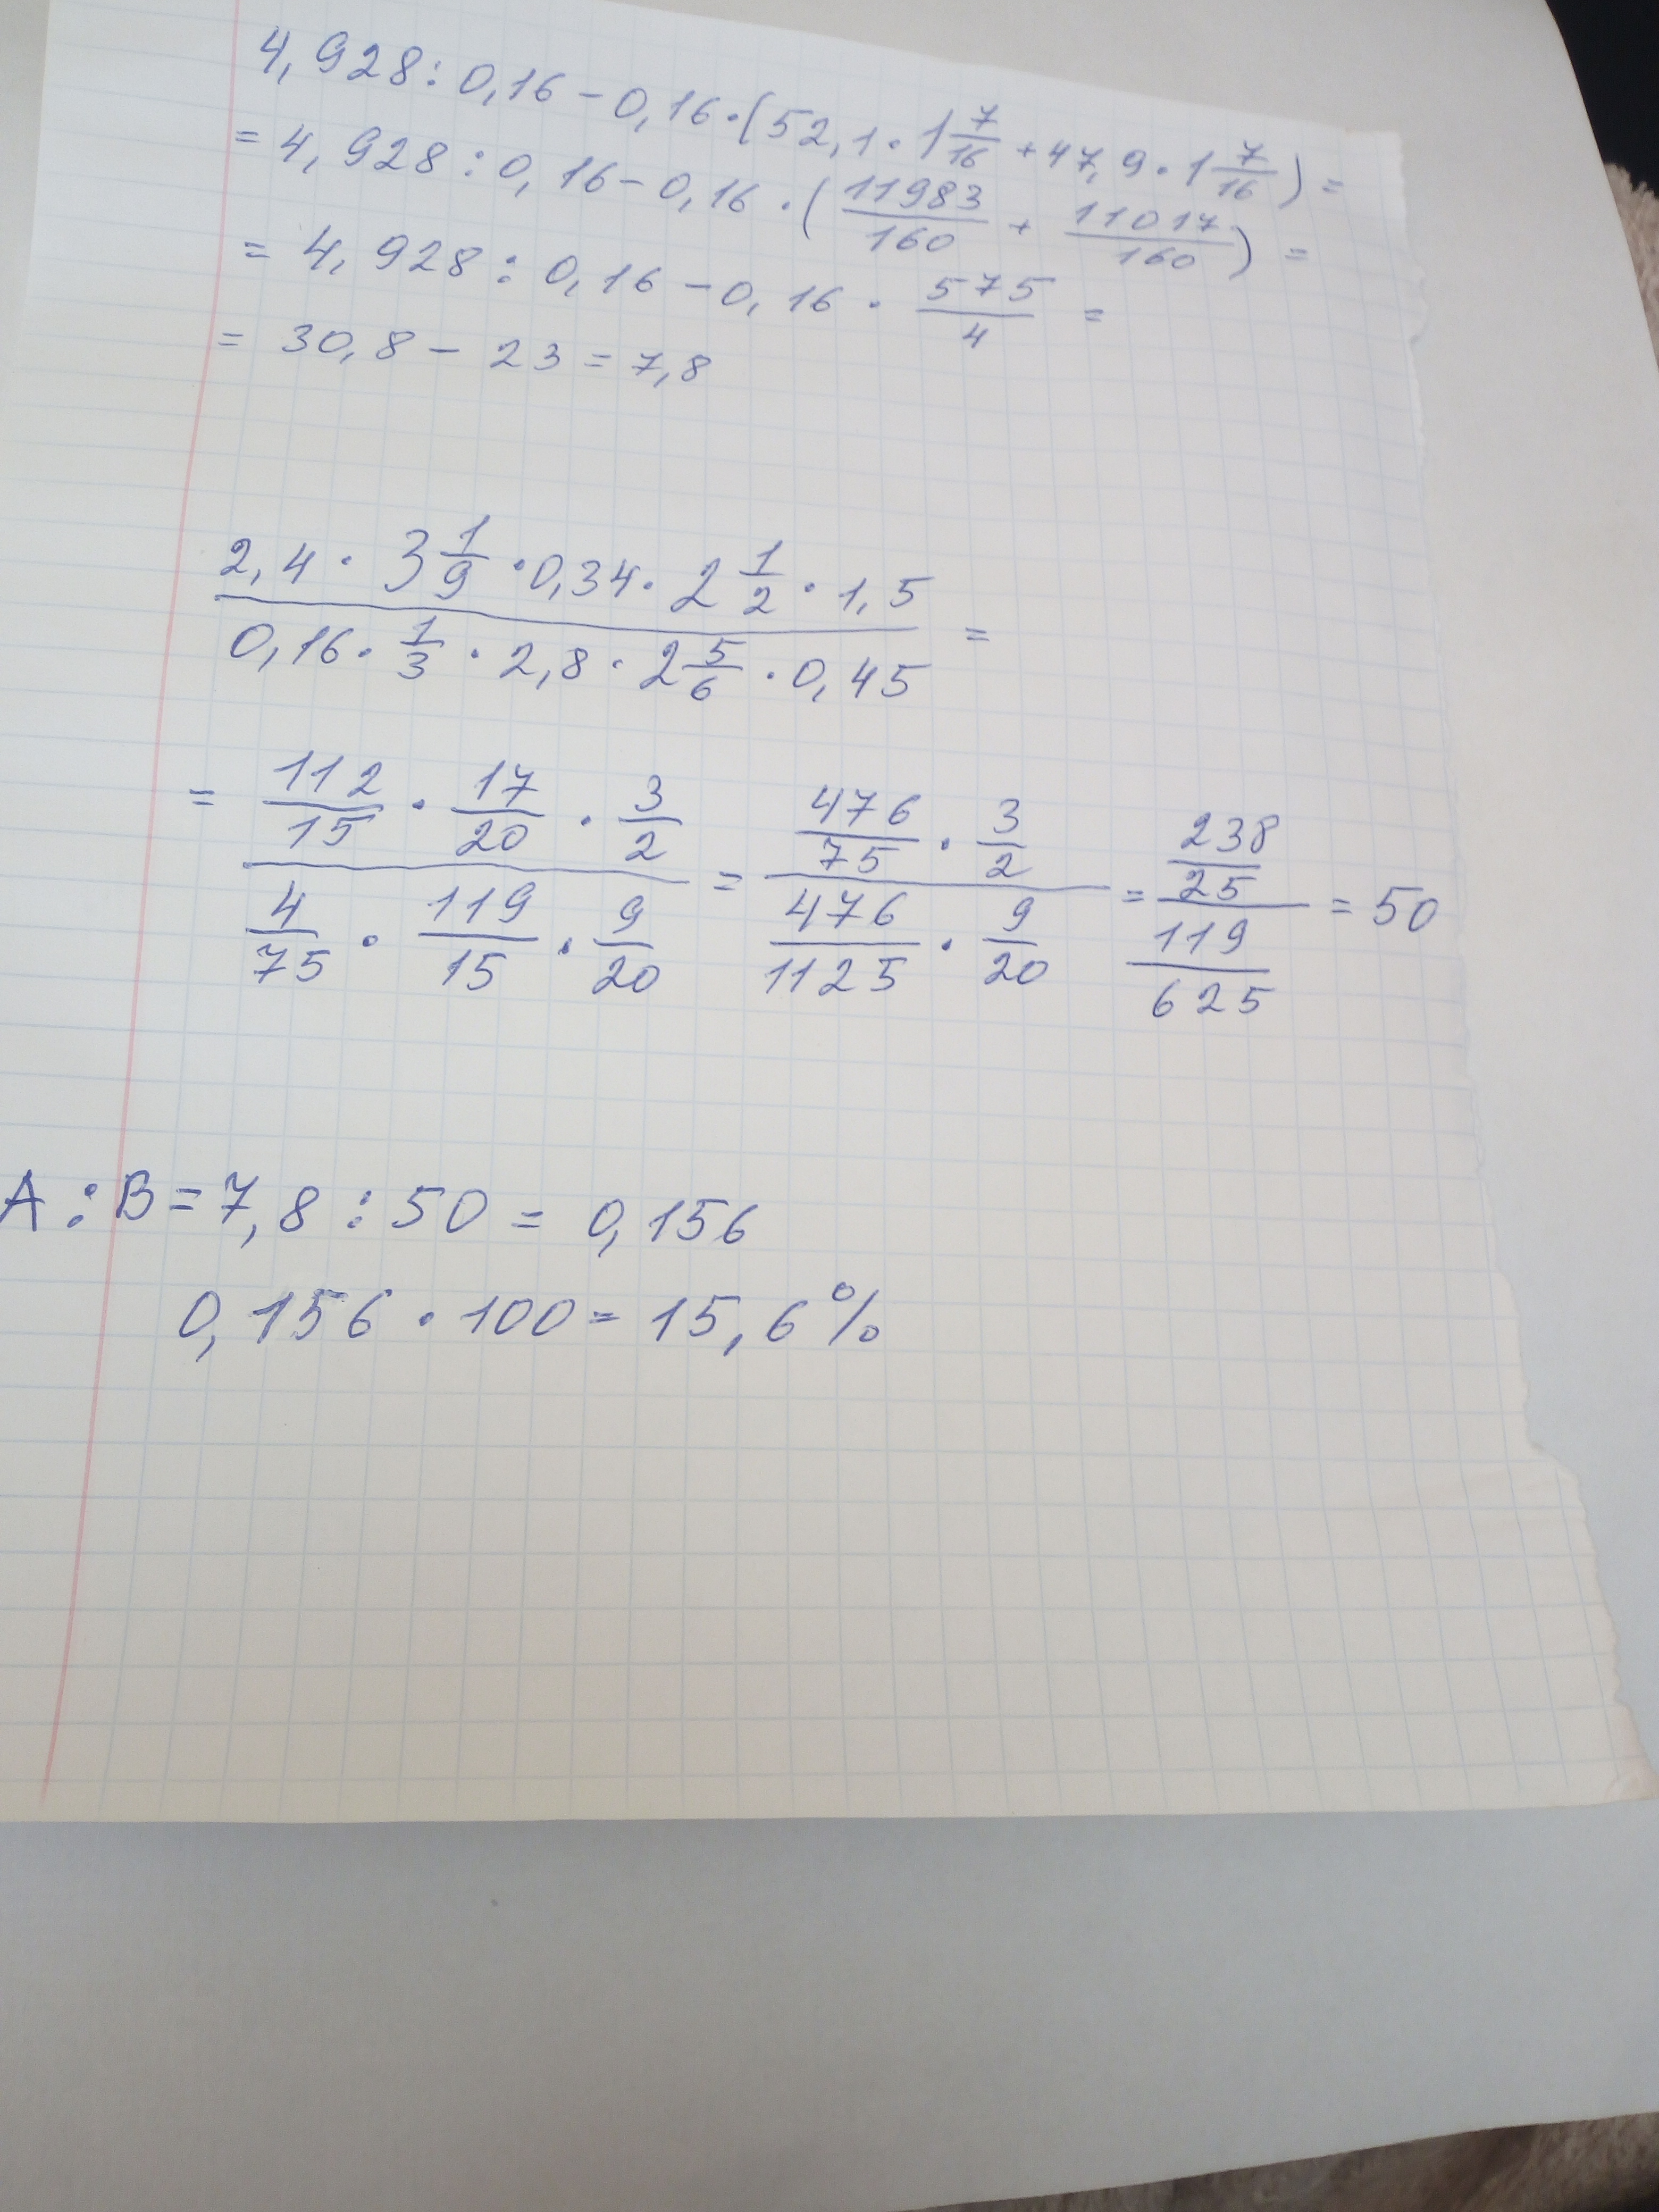 4,928 : 0,16 - 0,16 · (52,1 · 1 7/16 + 47,9 · 1 7/16) =
= 4,928 : 0,16 - 0,16 · (11983/160 + 11017/160) =
= 4,928 : 0,16 - 0,16 · 575/4 =
= 30,8 - 23 = 7,8
2,4 · 3 1/9 · 0,34 · 2 1/2 · 1,5
0,16 · 1/3 · 2,8 · 2 5/6 · 0,45 =
= (112/15 · 17/20 · 3/2)/(4/75 · 119/15 · 9/20) = (476/75 · 3/2)/(476/1125 · 9/20) = (238/25)/(119/625) = 50
A : B = 7,8 : 50 = 0,156
0,156 · 100 = 15,6 %